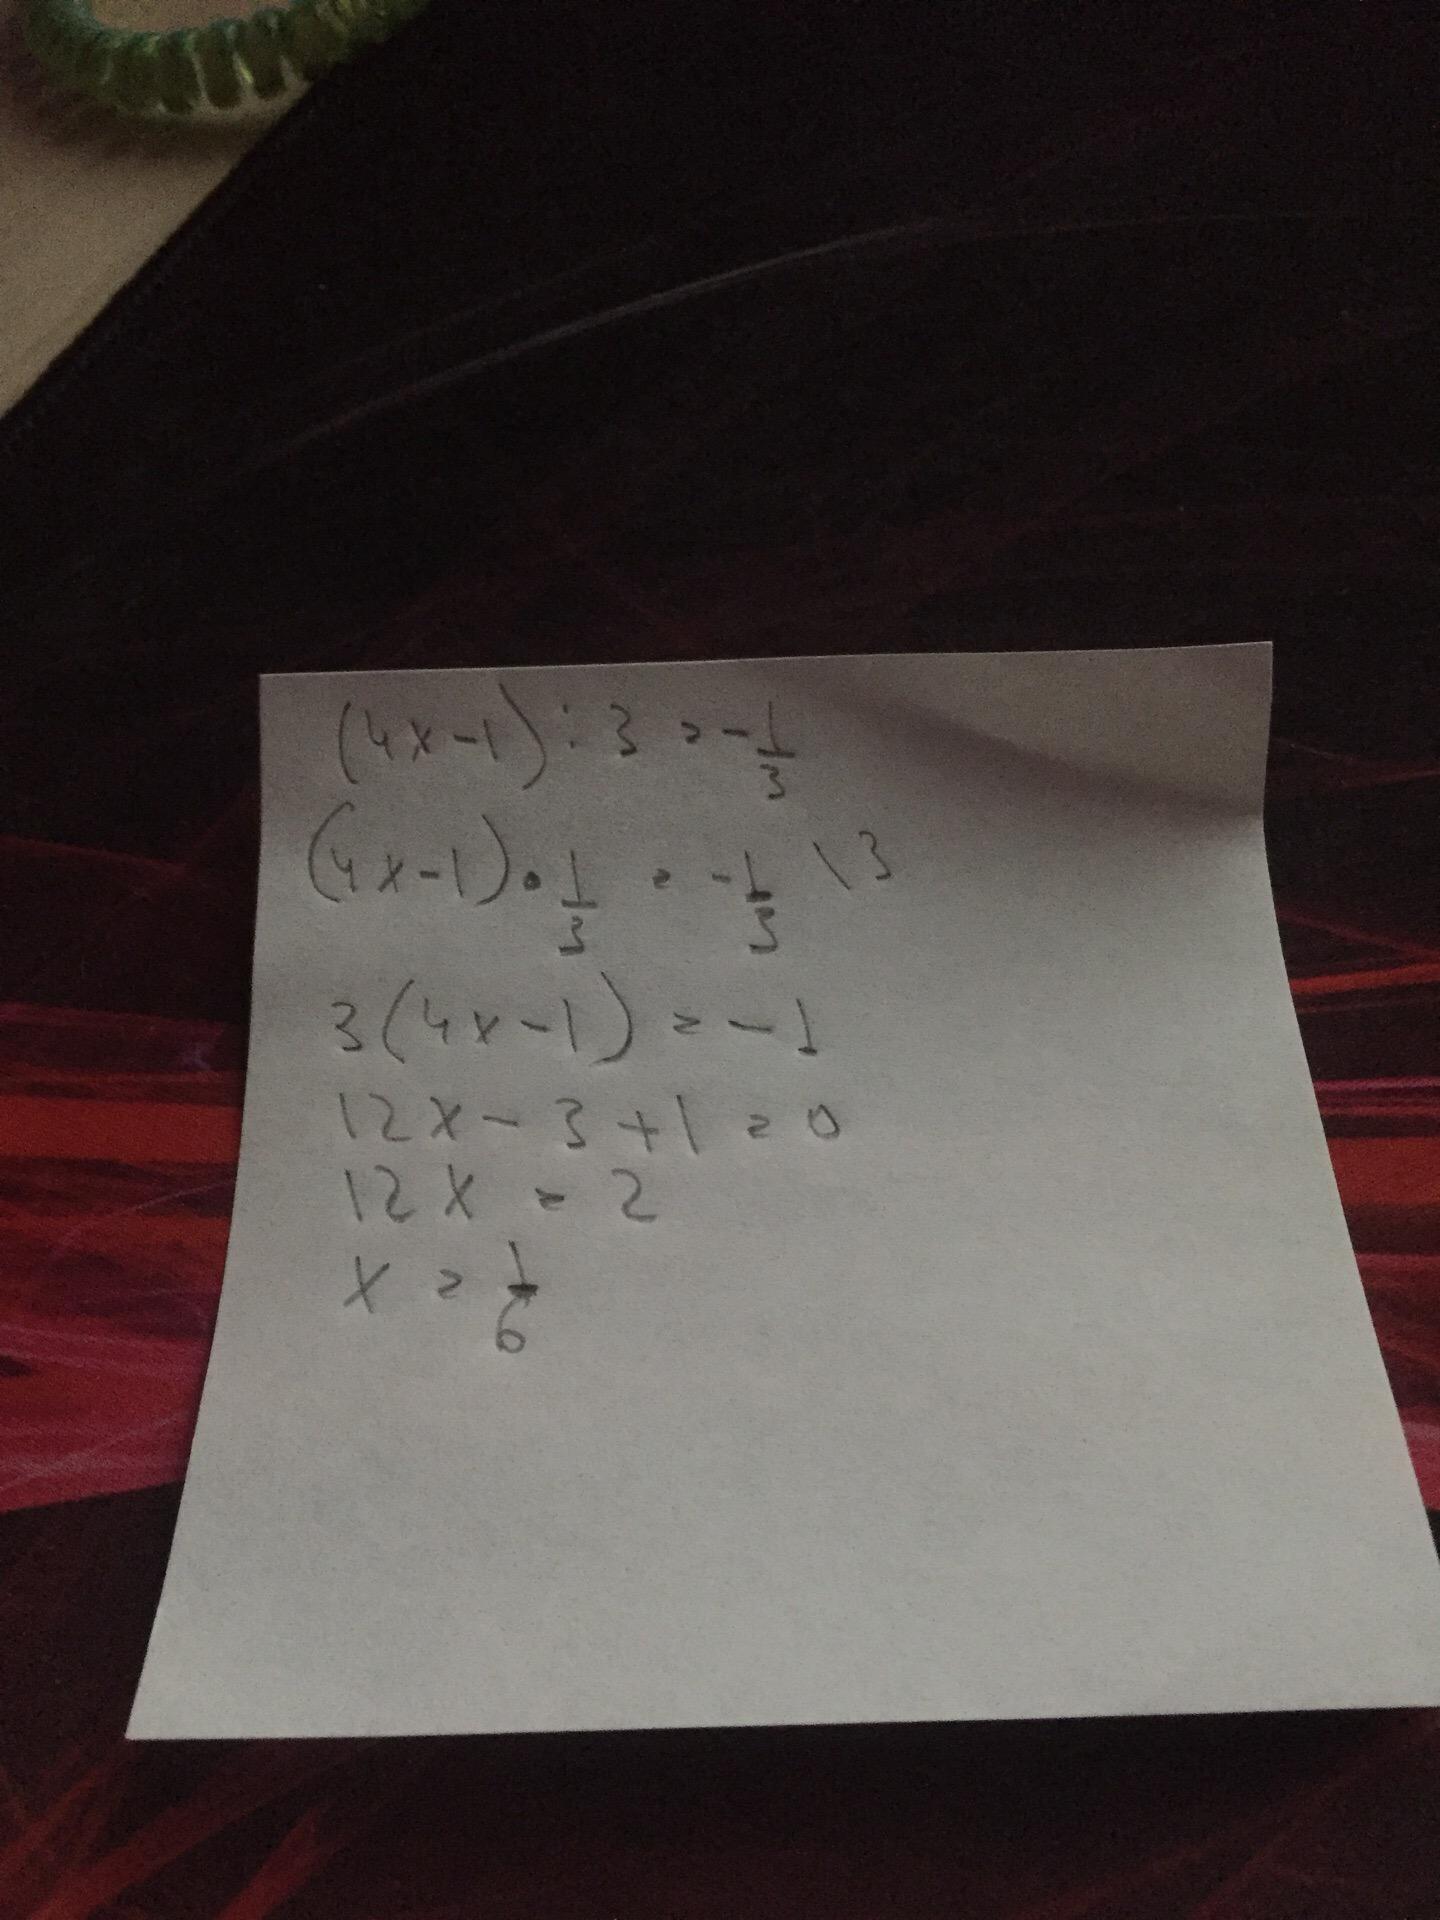 (4x-1):3 = -1/3
(4x-1)•1/3 = -1/3 \3
3(4x-1) = -1
12x - 3 + 1 = 0
12x = 2
x = 1/6